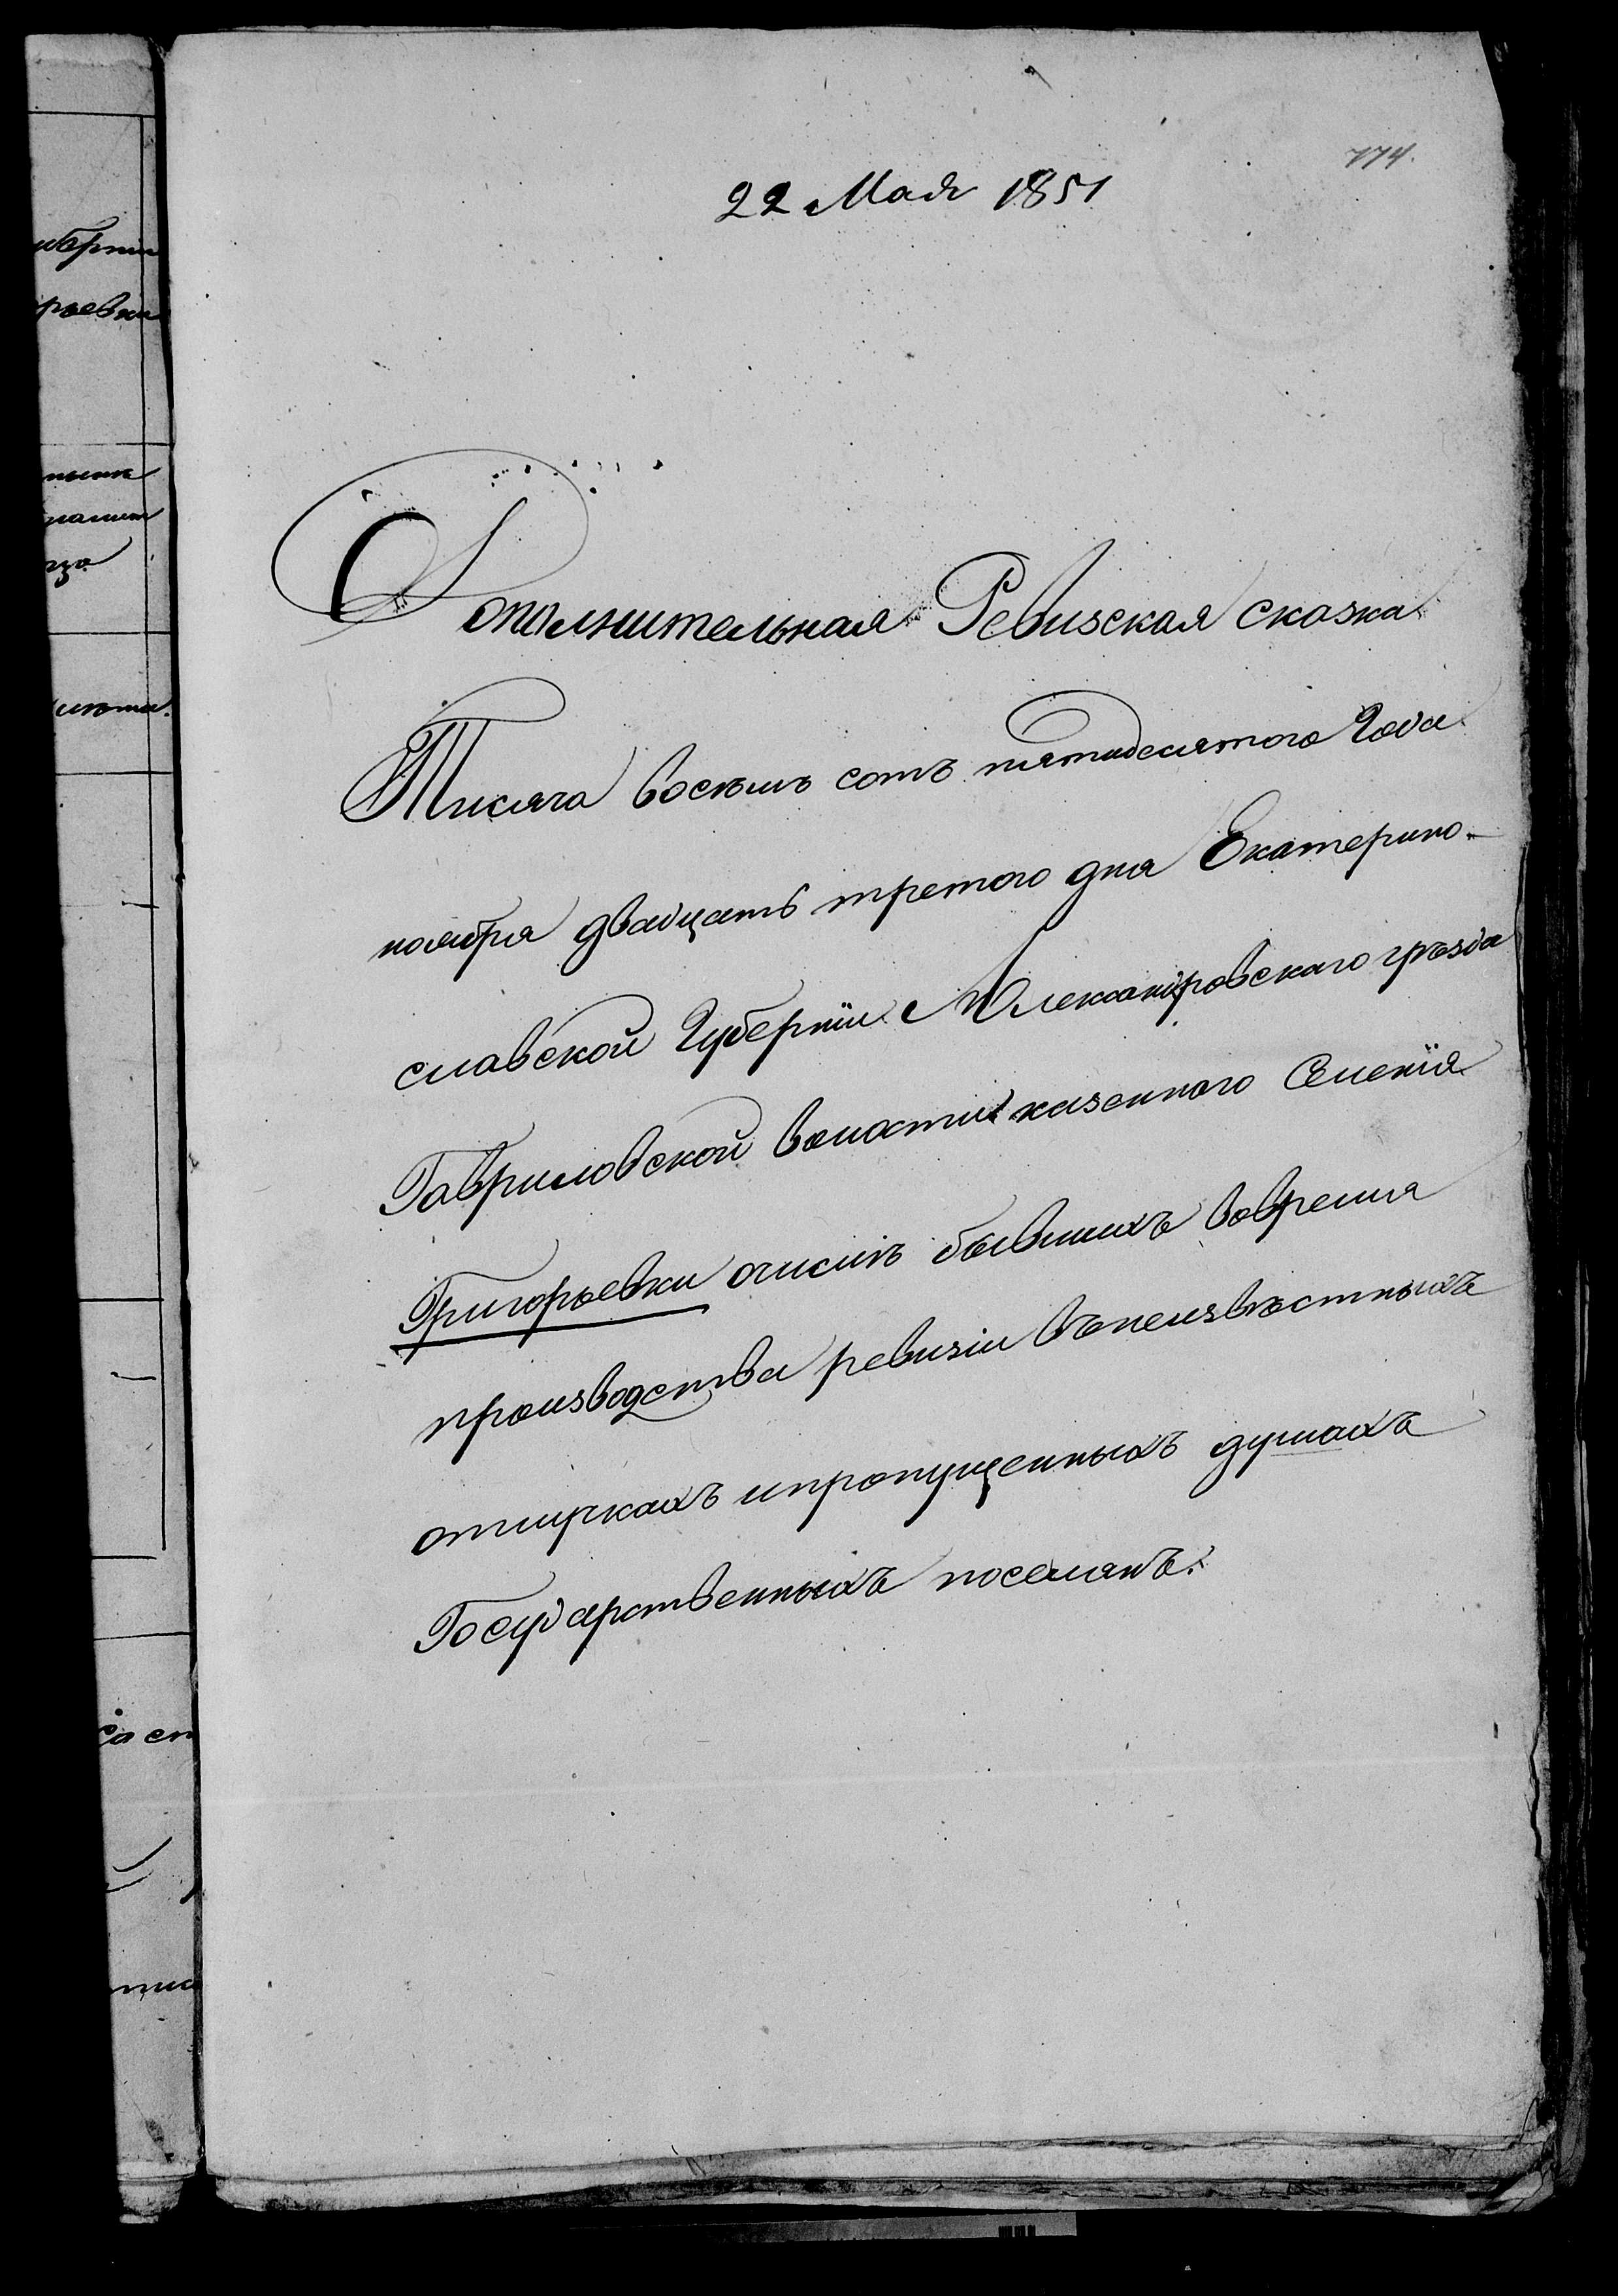 774.
22 Мая 1851
Дополнительная Ревизская сказка
Тисяча восемъ сотъ пятидесятого Года
ноября двадцать третого дня Екатерино-
славской Губернiи Александровскаго уѣзда
Гавриловской волости казенного Селенiя
Григорьевки
бывшихъ вовремя
производства ревизiи вънеизвѣстныхъ
отлучкахъ ипропущенныхъ душахъ
Государственныхъ поселянъ.